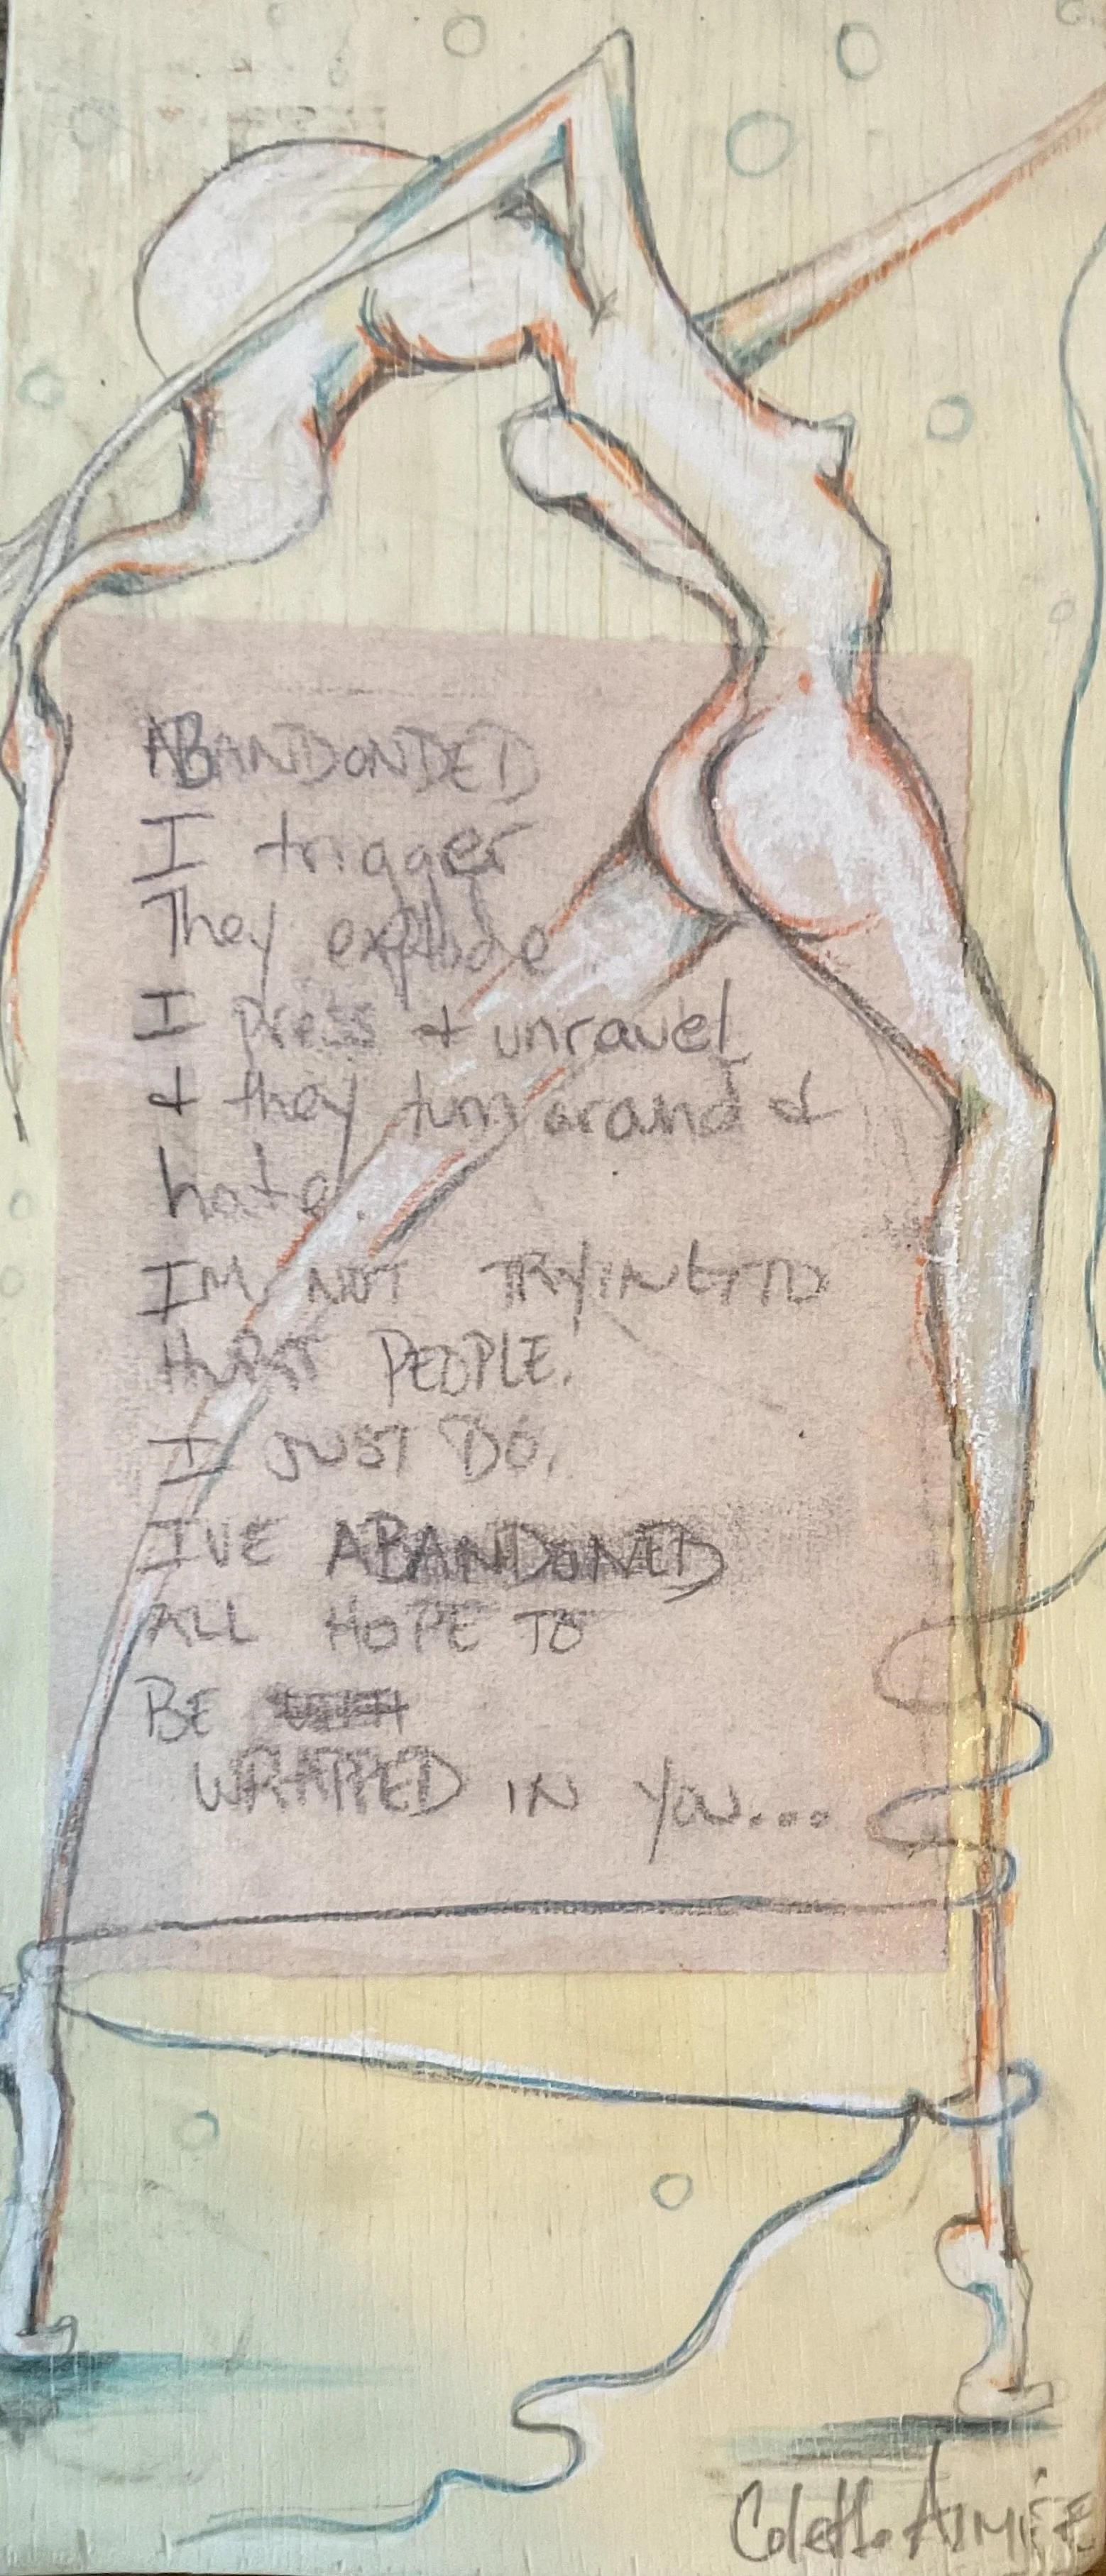 ABANDONDED
I trigger
They explode
I press & unravel
& they turn around &
hate.
IM NOT TRYING TO
HURT PEOPLE.
I JUST DO.
I'VE ABANDONED
ALL HOPE TO
BE
WRAPPED IN YOU...
Colette Aimée